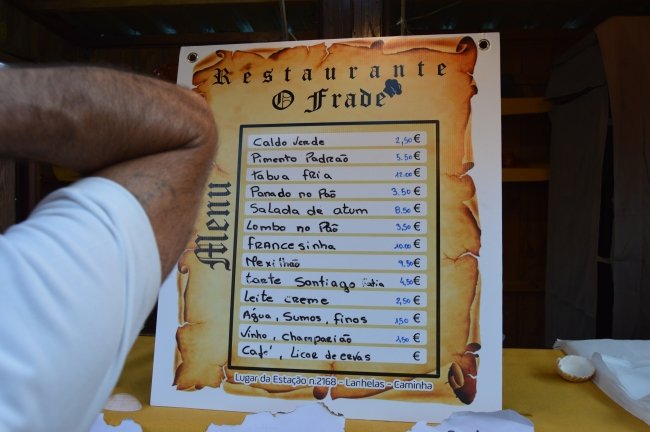 Restaurante
O Frade
Menu
Caldo verde 2,50 €
Pimento Padrão 5.50 €
Tábua fria 12.00 €
Panado no Pão 3.50 €
Salada de atum 8.50 €
Lombo no Pão 3,50 €
francesinha 10.00 €
Mexilhão 9,50 €
tarte Santiago fatia 4,50 €
Leite creme 2,50 €
Água, Sumos, finos 1,50 €
Vinho, champarião 1,50 €
Café, Licor de ervas €
Lugar da Estação n.2168 - Lanhelas - Caminha